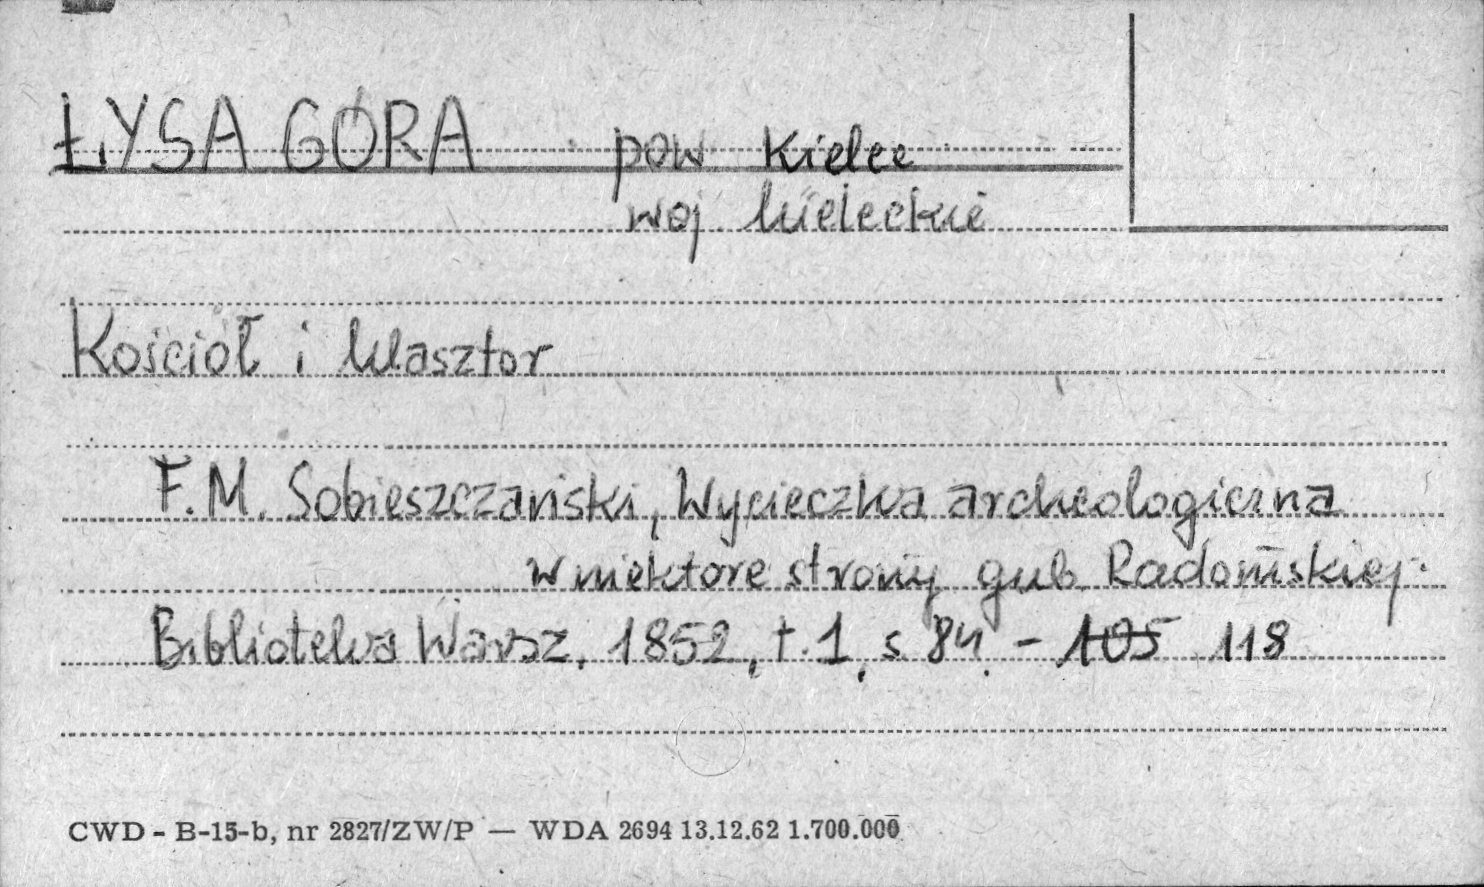 ŁYSA GÓRA pow Kielce
woj. kieleckie
Kościół i klasztor
F.M. Sobieszczański, Wycieczka archeologiczna
w niektóre strony gub. Radomskiej.
Biblioteka Warsz, 1852, t.1, s. 84 - ~~105~~ 118
CWD - B-15-b, nr 2827/ZW/P — WDA 2694 13.12.62 1.700.000